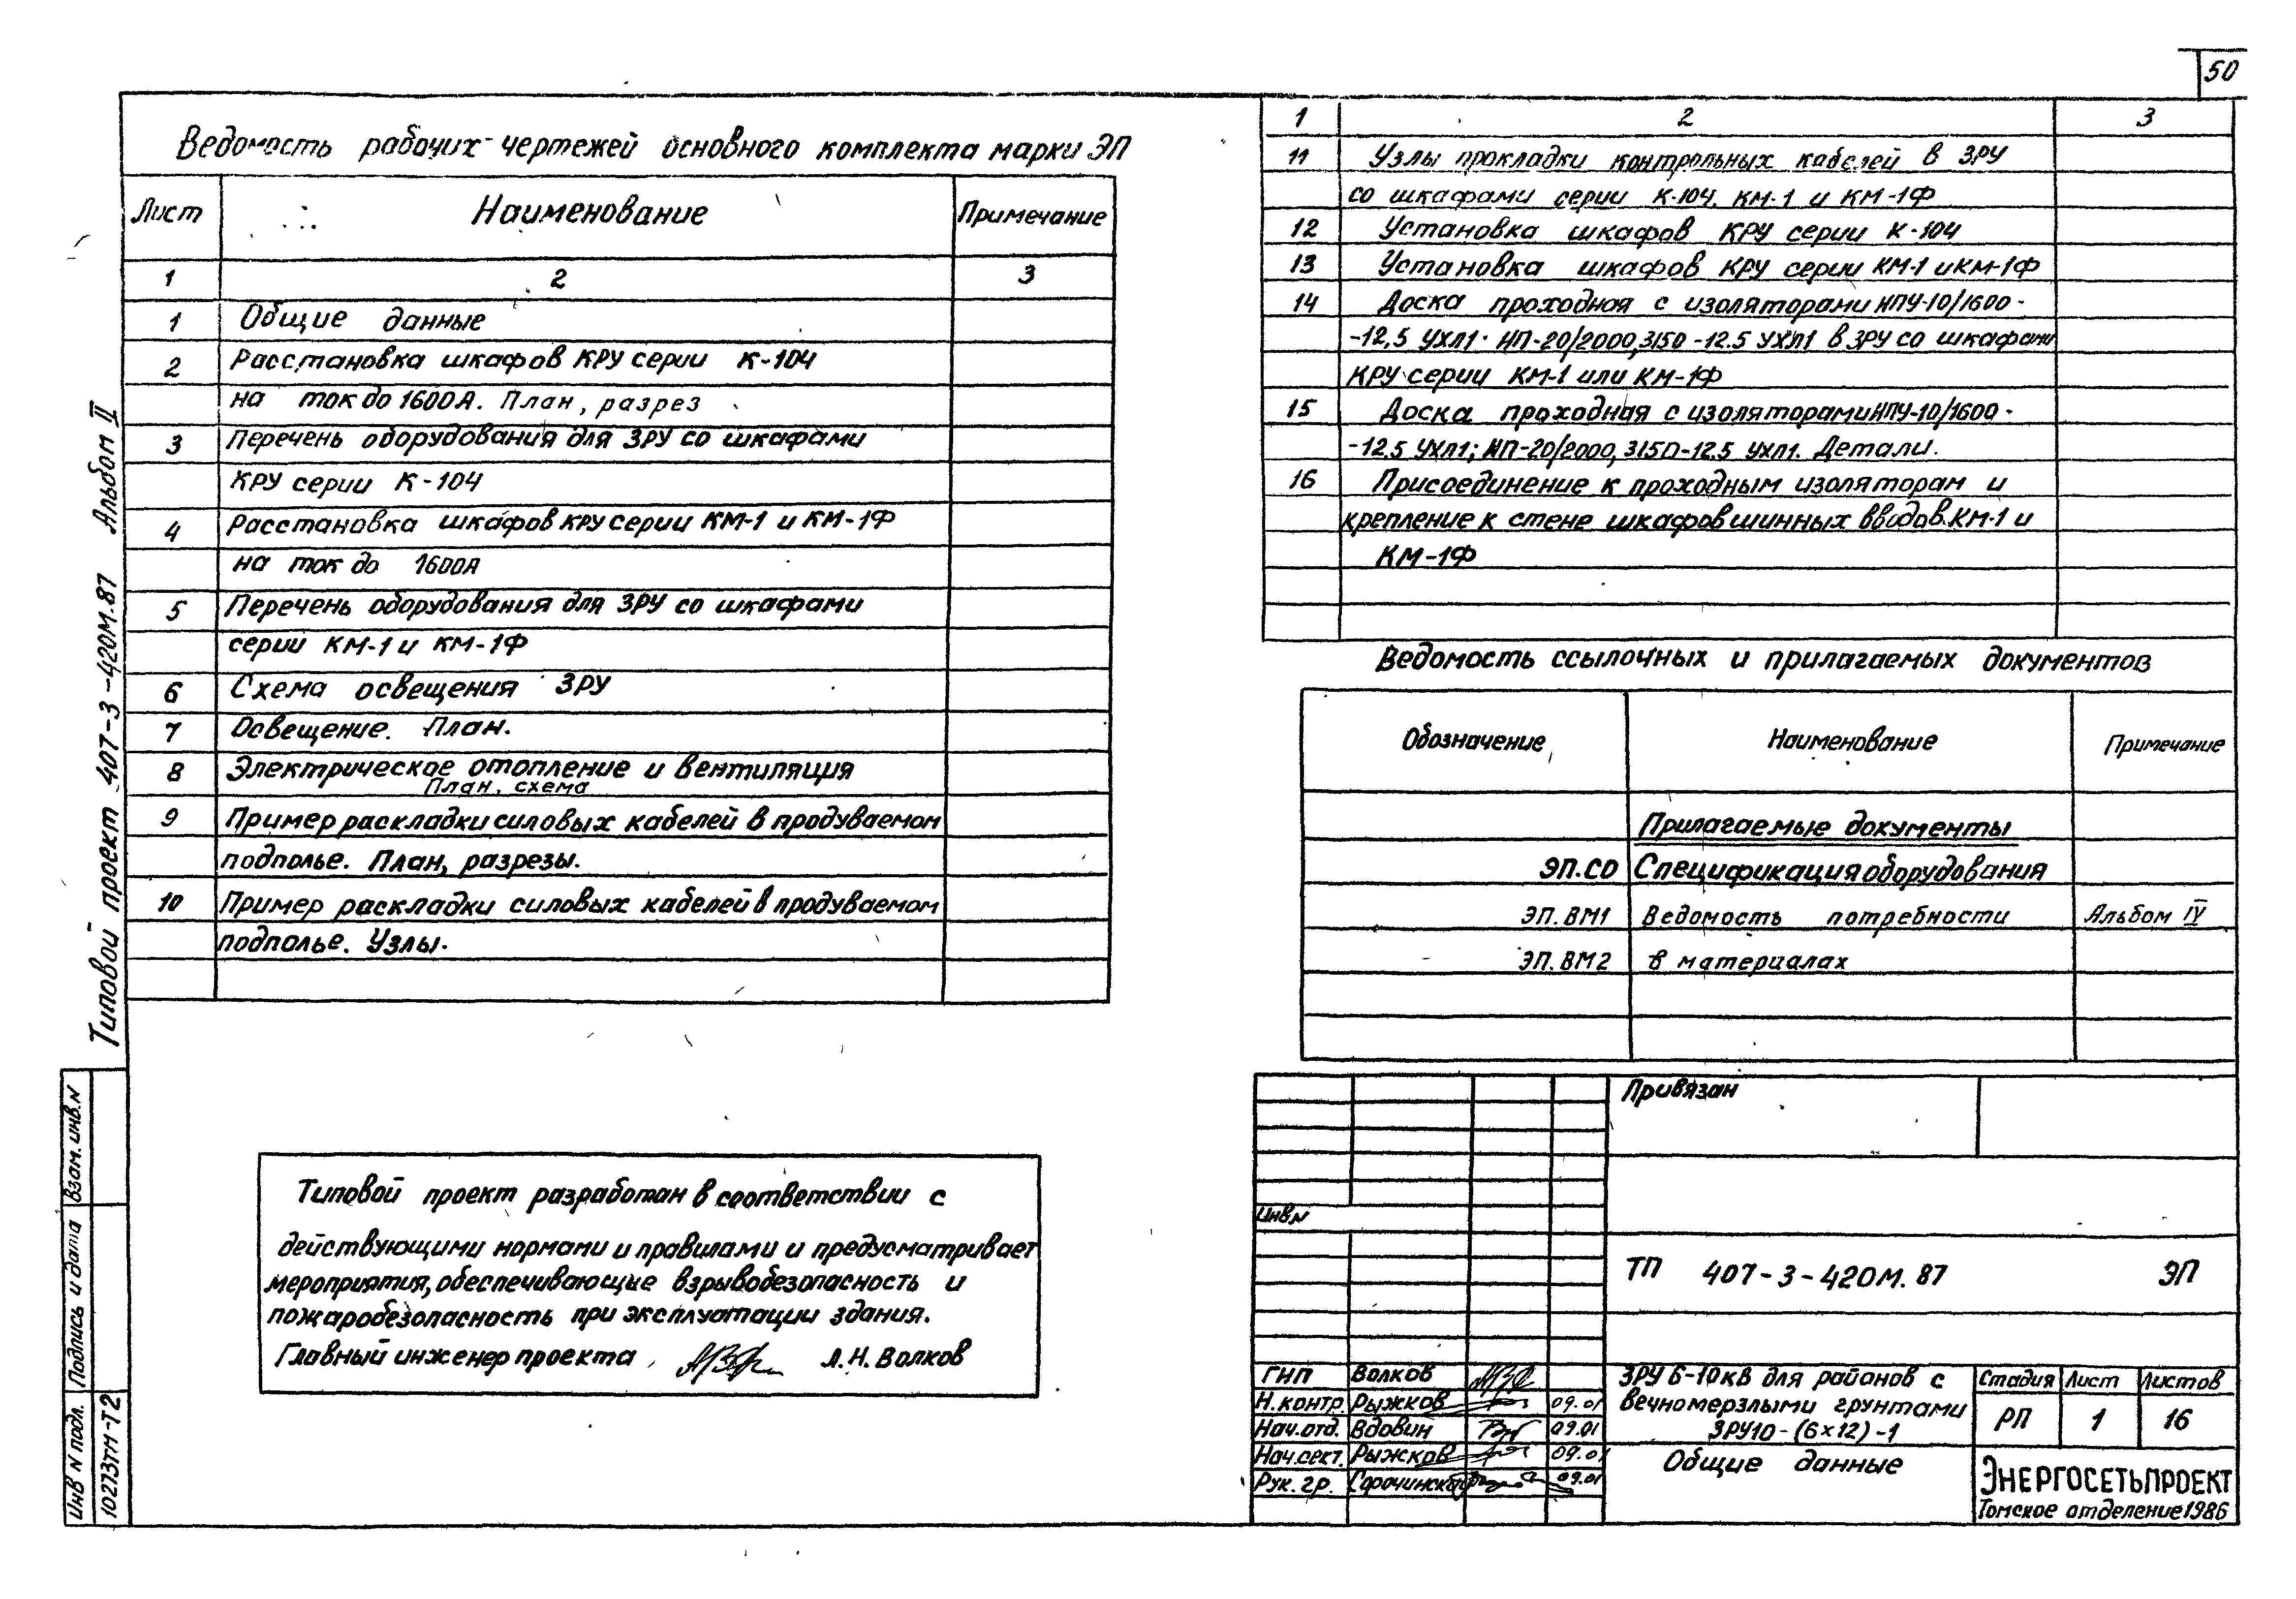 50
Ведомость рабочих чертежей основного комплекта марки ЭП
Лист Наименование Примечание
1 2 3
1 Общие данные
2 Расстановка шкафов КРУ серии К-104
на ток до 1600А. План, разрез
3 Перечень оборудования для ЗРУ со шкафами
КРУ серии К-104
4 Расстановка шкафов КРУ серии КМ-1 и КМ-1Ф
на ток до 1600А
5 Перечень оборудования для ЗРУ со шкафами
серии КМ-1 и КМ-1Ф
6 Схема освещения ЗРУ
7 Освещение. План.
8 Электрическое отопление и вентиляция
План, схема
9 Пример раскладки силовых кабелей в продуваемом
подполье. План, разрезы.
10 Пример раскладки силовых кабелей в продуваемом
подполье. Узлы.
1 2 3
11 Узлы прокладки контрольных кабелей в ЗРУ
со шкафами серии К-104, КМ-1 и КМ-1Ф
12 Установка шкафов КРУ серии К-104
13 Установка шкафов КРУ серии КМ-1 и КМ-1Ф
14 Доска проходная с изоляторами ИПУ-10/1600-
-12,5 УХЛ1· ИП-20/2000,3150-12.5 УХЛ1 в ЗРУ со шкафами
КРУ серии КМ-1 или КМ-1Ф
15 Доска проходная с изоляторами ИПУ-10/1600-
-12.5 УХЛ1; ИП-20/2000, 3150-12.5 УХЛ1. Детали.
16 Присоединение к проходным изоляторам и
крепление к стене шкафов шинных вводов.КМ-1 и
КМ-1Ф
Ведомость ссылочных и прилагаемых документов
Обозначение Наименование Примечание
Прилагаемые документы
ЭП.СО Спецификация оборудования
ЭП.ВМ1 Ведомость потребности Альбом IV
ЭП.ВМ2 в материалах
Типовой проект разработан в соответствии с
действующими нормами и правилами и предусматривает
мероприятия, обеспечивающие взрывобезопасность и
пожаробезопасность при эксплуатации здания.
Главный инженер проекта А.Н. Волков
Привязан
Инв.N
ТП 407-3-420М.87 ЭП
ГИП Волков
Н.контр. Рыжков 09.01
Нач.отд. Вдовин 09.01
Нач.сект. Рыжков 09.01
Рук.гр. 09.01
ЗРУ 6-10кВ для районов с
вечномерзлыми грунтами
ЗРУ10-(6×12)-1
Общие данные
Стадия Лист Листов
РП 1 16
ЭНЕРГОСЕТЬПРОЕКТ
Томское отделение 1986
Типовой проект 407-3-420М.87 Альбом II
Инв N подл. Подпись и дата Взам.инв.N
10273тм-Т2